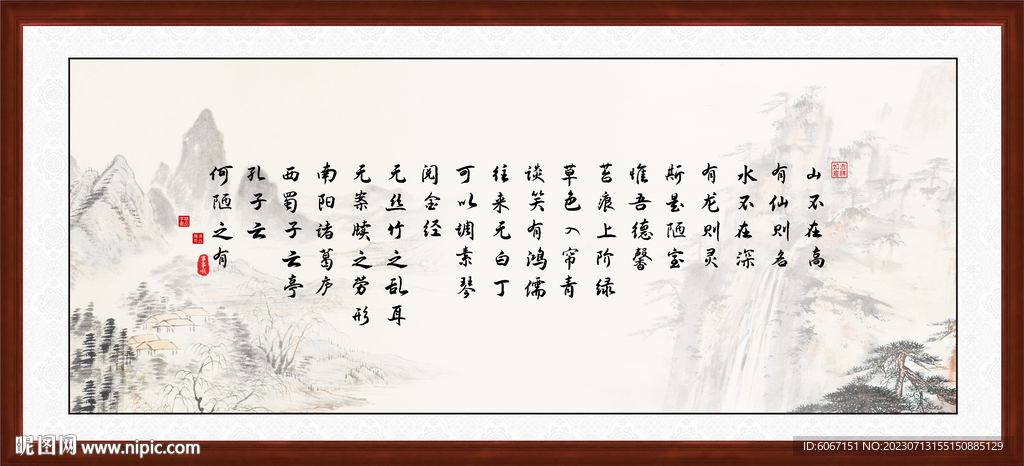 山不在高
有仙则名
水不在深
有龙则灵
斯是陋室
惟吾德馨
苔痕上阶绿
草色入帘青
谈笑有鸿儒
往来无白丁
可以调素琴
阅金经
无丝竹之乱耳
无案牍之劳形
南阳诸葛庐
西蜀子云亭
孔子云
何陋之有
吉祥如意
昵图网 www.nipic.com
ID:6067151 NO:20230713155150885129